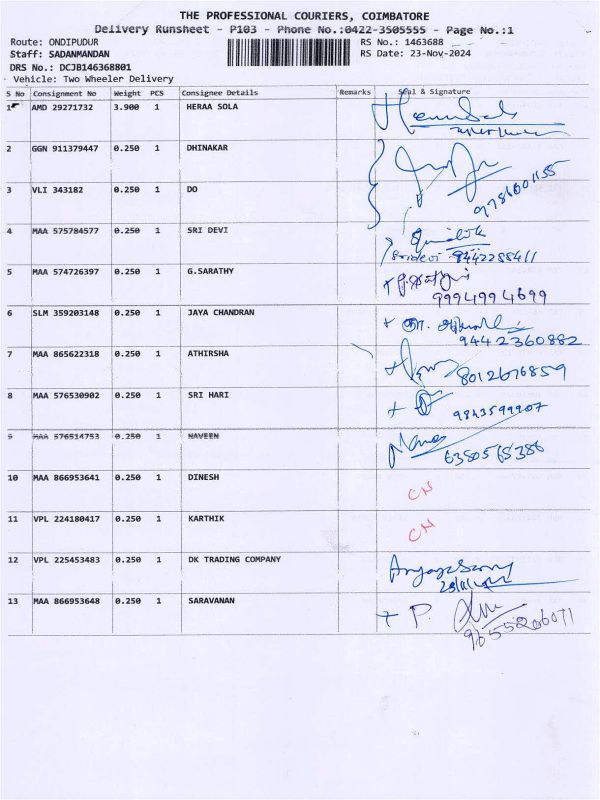 THE PROFESSIONAL COURIERS, COIMBATORE
Delivery Runsheet - P103 - Phone No.:0422-3505555 - Page No.:1
Route: ONDIPUDUR RS No.: 1463688
Staff: SADANMANDAN RS Date: 23-Nov-2024
DRS No.: DCJB146368801
Vehicle: Two Wheeler Delivery
S No Consignment No Weight PCS Consignee Details Remarks Seal & Signature
1 AMD 29271732 3.900 1 HERAA SOLA
2 GGN 911379447 0.250 1 DHINAKAR
3 VLI 343182 0.250 1 DO
4 MAA 575784577 0.250 1 SRI DEVI
Sridevi 9442288411
5 MAA 574726397 0.250 1 G.SARATHY
9994994699
6 SLM 359203148 0.250 1 JAYA CHANDRAN
9442360882
7 MAA 865622318 0.250 1 ATHIRSHA
8012676859
8 MAA 576530902 0.250 1 SRI HARI
9843599907
9 MAA 576514753 0.250 1 NAVEEN
6380565386
10 MAA 866953641 0.250 1 DINESH CN
11 VPL 224180417 0.250 1 KARTHIK CN
12 VPL 225453483 0.250 1 DK TRADING COMPANY
13 MAA 866953648 0.250 1 SARAVANAN P.